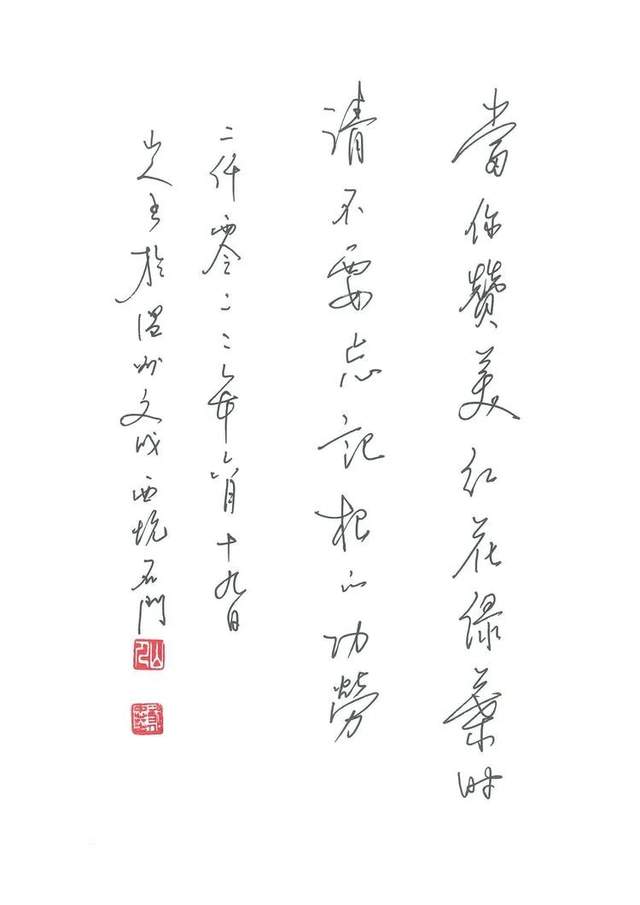 當你贊美红花绿葉时
请不要忘记根的功勞
二仟零二二年六月十九日
山人书於温州文成西坑石門